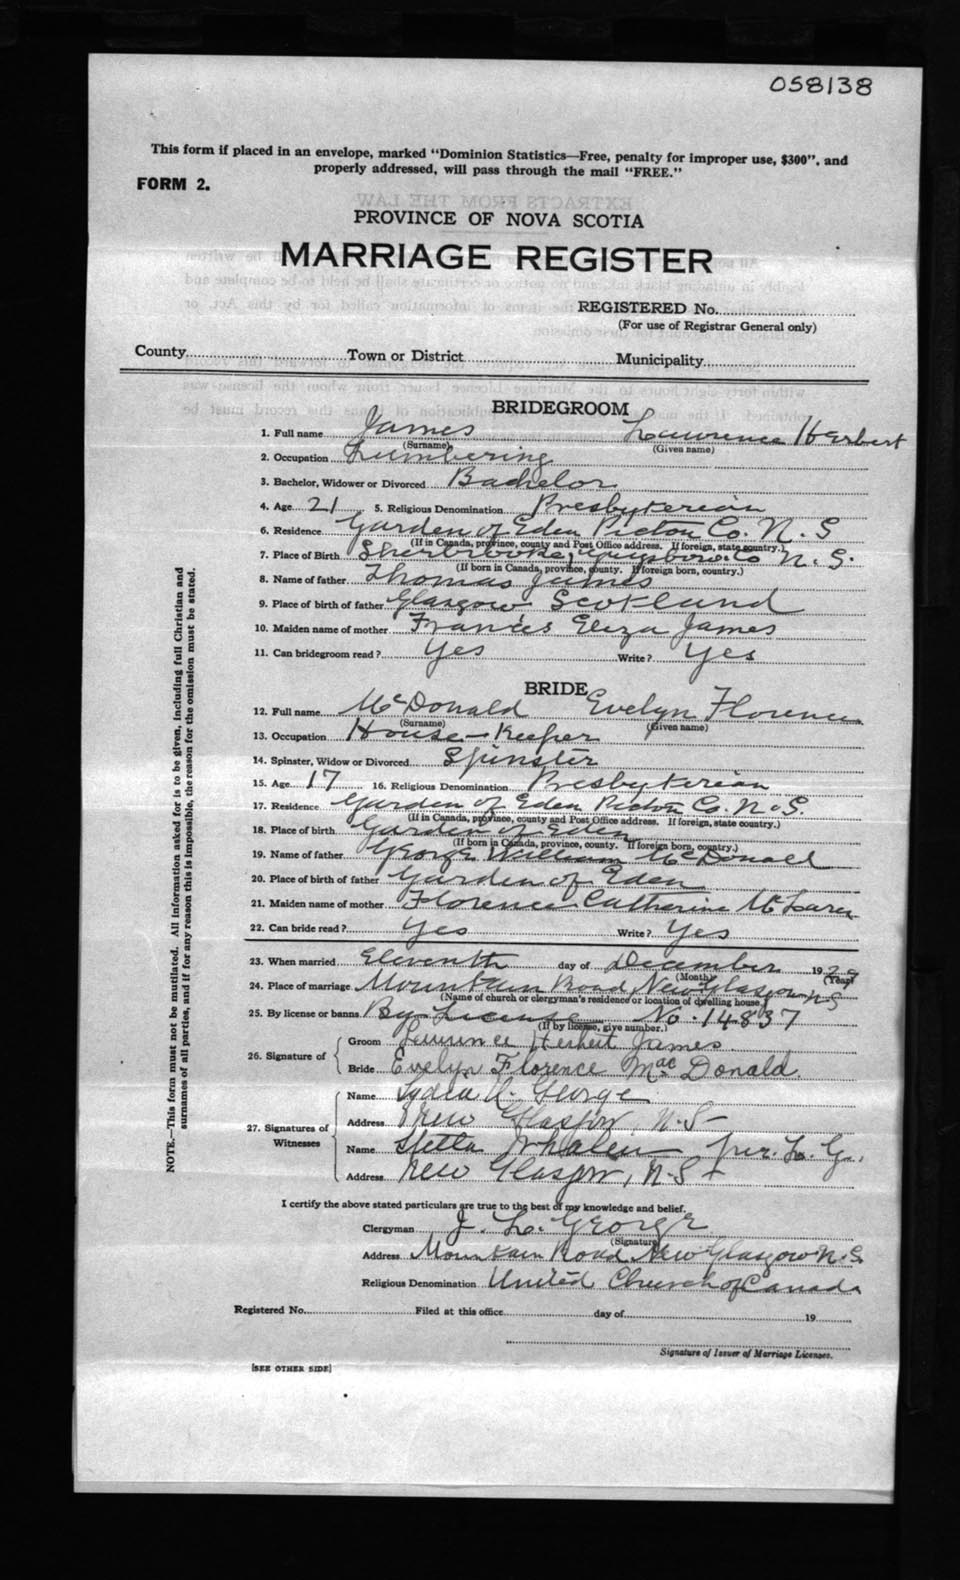 058138
This form if placed in an envelope, marked "Dominion Statistics—Free, penalty for improper use, $300", and
properly addressed, will pass through the mail "FREE."
FORM 2.
PROVINCE OF NOVA SCOTIA
MARRIAGE REGISTER
REGISTERED No.
(For use of Registrar General only)
County Town or District Municipality
BRIDEGROOM
1. Full name James Lawrence Herbert
(Surname) (Given name)
2. Occupation Lumbering
3. Bachelor, Widower or Divorced Bachelor
4. Age 21 5. Religious Denomination Presbyterian
6. Residence Garden of Eden Pictou Co. N.S
(If in Canada, province, county and Post Office address. If foreign, state country.)
7. Place of Birth Sherbrooke, Guysboro Co N.S.
(If born in Canada, province, county. If foreign born, country.)
8. Name of father Thomas James
9. Place of birth of father Glasgow, Scotland
10. Maiden name of mother Francis Eliza James
11. Can bridegroom read? Yes Write? Yes
BRIDE
12. Full name McDonald Evelyn Florence
(Surname) (Given name)
13. Occupation House-Keeper
14. Spinster, Widow or Divorced Spinster
15. Age 17 16. Religious Denomination Presbyterian
17. Residence Garden of Eden Pictou Co. N.S.
(If in Canada, province, county and Post Office address. If foreign, state country.)
18. Place of birth Garden of Eden
(If born in Canada, province, county. If foreign born, country.)
19. Name of father George William McDonald
20. Place of birth of father Garden of Eden
21. Maiden name of mother Florence Catherine McLaren
22. Can bride read? Yes Write? Yes
23. When married Eleventh day of December 1929
(Month) (Year)
24. Place of marriage Mountain Road, New Glasgow NS
(Name of church or clergyman's residence or location of dwelling house.)
25. By license or banns By License No. 14837
(If by license, give number.)
26. Signature of Groom Lawrence Herbert James
Bride Evelyn Florence MacDonald.
27. Signatures of Witnesses Name Lydia A. George
Address New Glasgow, N.S
Name Stetta Whalen per. L. G.
Address New Glasgow, N.S
I certify the above stated particulars are true to the best of my knowledge and belief.
Clergyman J. L. George
(Signature)
Address Mountain Road New Glasgow N.S.
Religious Denomination United Church of Canada
Registered No. Filed at this office day of 19
Signature of Issuer of Marriage Licenses.
[SEE OTHER SIDE]
NOTE.—This form must not be mutilated. All information asked for is to be given, including full Christian and
surnames of all parties, and if for any reason this is impossible, the reason for the omission must be stated.